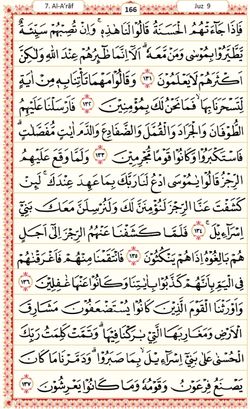 7. Al-A'râf
166
Juz 9
فَإِذَا جَاءَتْهُمُ الْحَسَنَةُ قَالُوا لَنَا هَٰذِهِ ۖ وَإِنْ تُصِبْهُمْ سَيِّئَةٌ
يَطَّيَّرُوا بِمُوسَىٰ وَمَنْ مَعَهُ ۗ أَلَا إِنَّمَا طَائِرُهُمْ عِنْدَ اللَّهِ وَلَٰكِنَّ
أَكْثَرَهُمْ لَا يَعْلَمُونَ ﴿١٣١﴾ وَقَالُوا مَهْمَا تَأْتِنَا بِهِ مِنْ آيَةٍ
لِتَسْحَرَنَا بِهَا فَمَا نَحْنُ لَكَ بِمُؤْمِنِينَ ﴿١٣٢﴾ فَأَرْسَلْنَا عَلَيْهِمُ
الطُّوفَانَ وَالْجَرَادَ وَالْقُمَّلَ وَالضَّفَادِعَ وَالدَّمَ آيَاتٍ مُفَصَّلَاتٍ
فَاسْتَكْبَرُوا وَكَانُوا قَوْمًا مُجْرِمِينَ ﴿١٣٣﴾ وَلَمَّا وَقَعَ عَلَيْهِمُ
الرِّجْزُ قَالُوا يَا مُوسَى ادْعُ لَنَا رَبَّكَ بِمَا عَهِدَ عِنْدَكَ ۖ لَئِنْ
كَشَفْتَ عَنَّا الرِّجْزَ لَنُؤْمِنَنَّ لَكَ وَلَنُرْسِلَنَّ مَعَكَ بَنِي
إِسْرَائِيلَ ﴿١٣٤﴾ فَلَمَّا كَشَفْنَا عَنْهُمُ الرِّجْزَ إِلَىٰ أَجَلٍ
هُمْ بَالِغُوهُ إِذَا هُمْ يَنْكُثُونَ ﴿١٣٥﴾ فَانْتَقَمْنَا مِنْهُمْ فَأَغْرَقْنَاهُمْ
فِي الْيَمِّ بِأَنَّهُمْ كَذَّبُوا بِآيَاتِنَا وَكَانُوا عَنْهَا غَافِلِينَ ﴿١٣٦﴾
وَأَوْرَثْنَا الْقَوْمَ الَّذِينَ كَانُوا يُسْتَضْعَفُونَ مَشَارِقَ
الْأَرْضِ وَمَغَارِبَهَا الَّتِي بَارَكْنَا فِيهَا ۖ وَتَمَّتْ كَلِمَتُ رَبِّكَ
الْحُسْنَىٰ عَلَىٰ بَنِي إِسْرَائِيلَ بِمَا صَبَرُوا ۖ وَدَمَّرْنَا مَا كَانَ
يَصْنَعُ فِرْعَوْنُ وَقَوْمُهُ وَمَا كَانُوا يَعْرِشُونَ ﴿١٣٧﴾